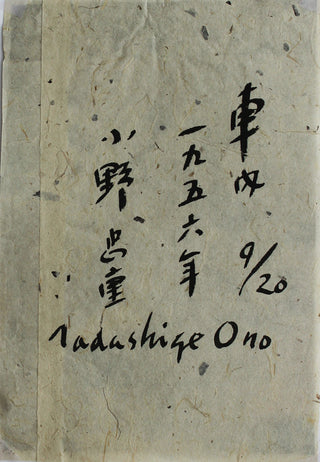 車内 9/20
一九五六年
小野忠重
Tadashige Ono